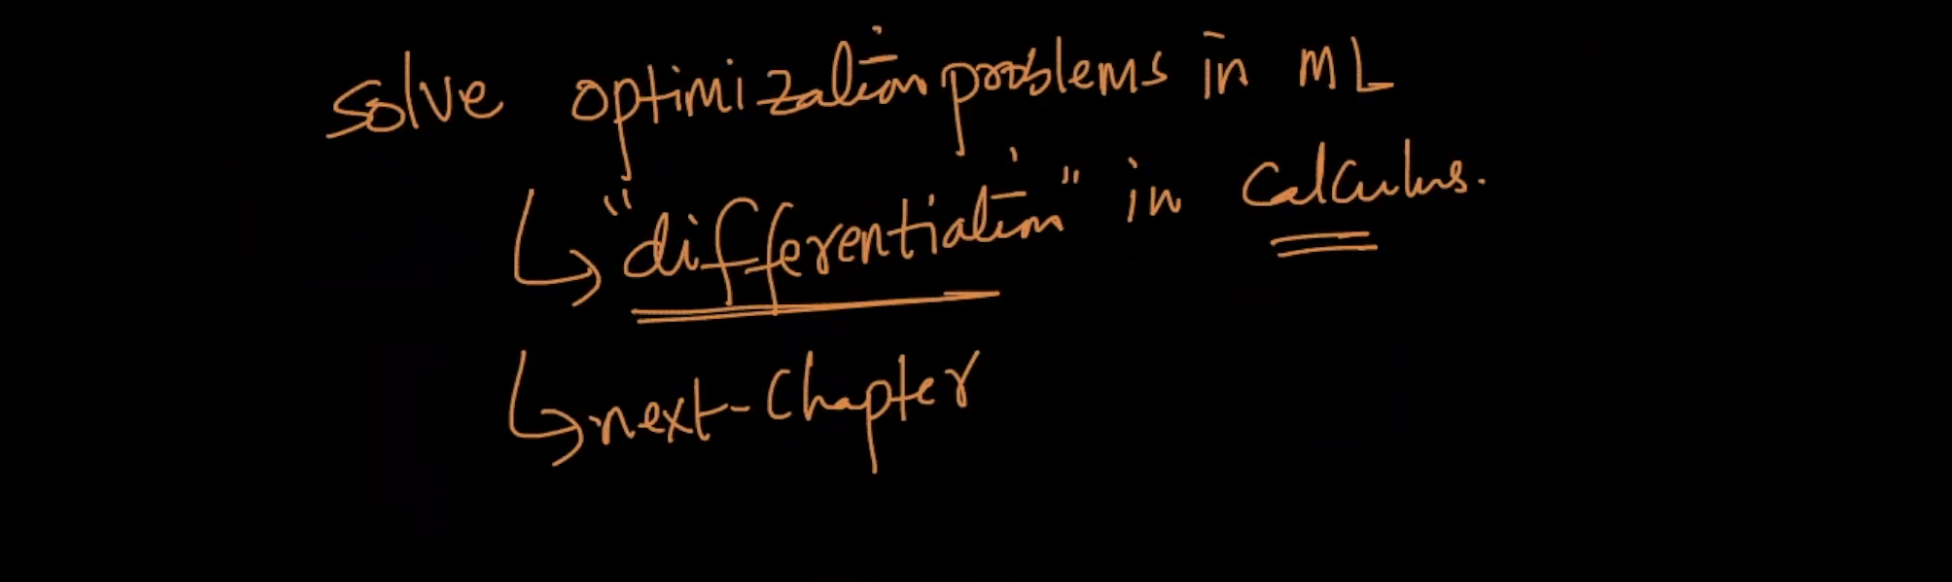 solve optimization problems in ML
↳ "differentiation" in calculus.
↳ next-chapter